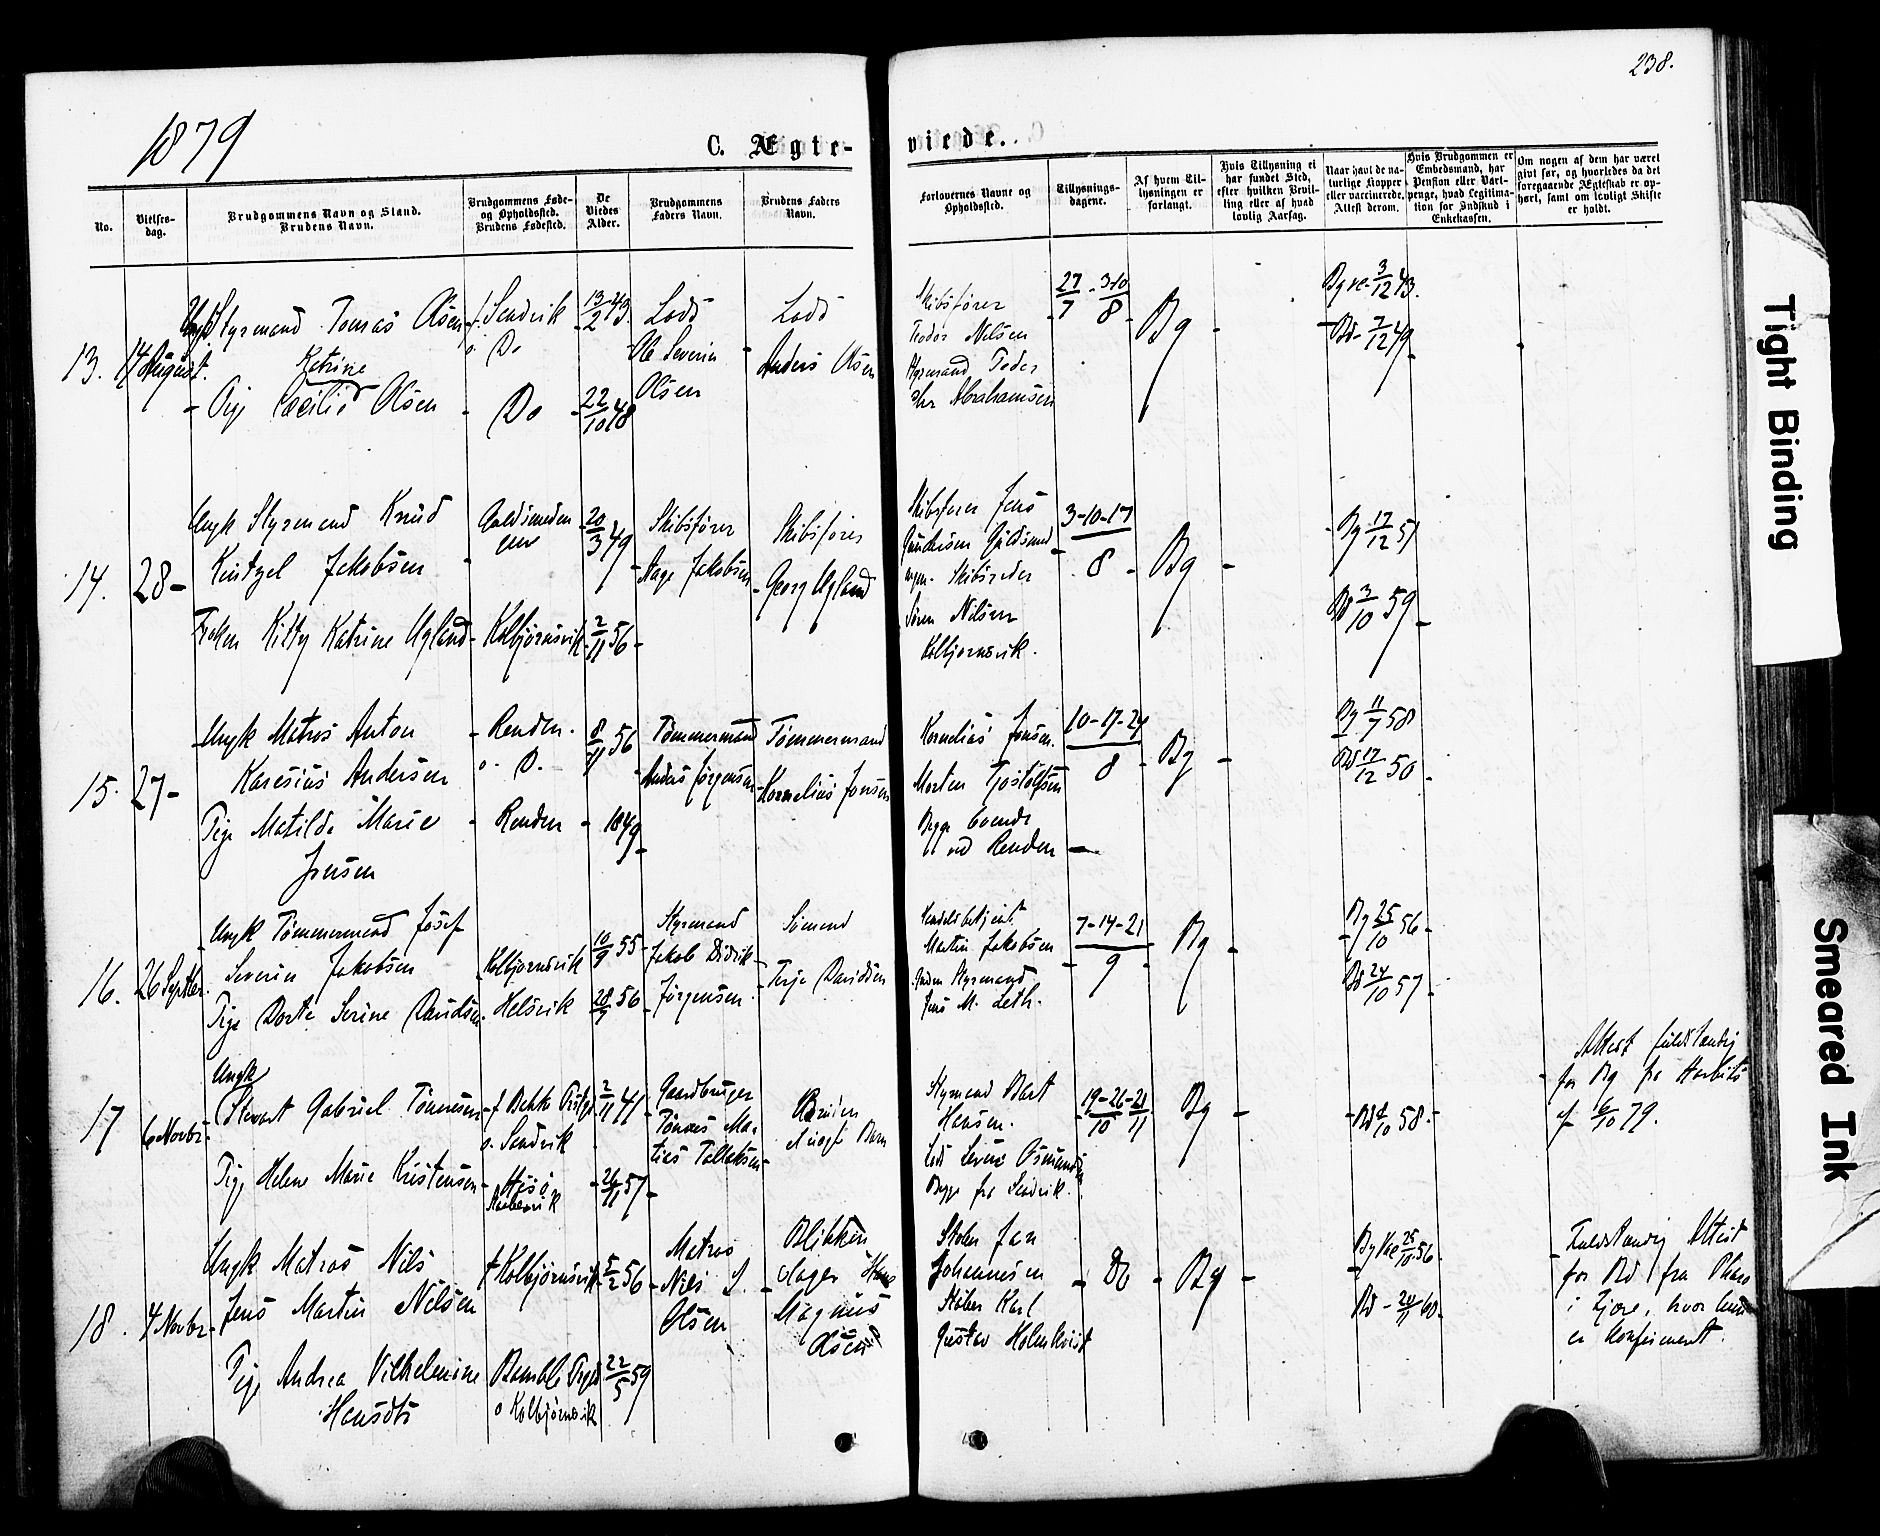 238.
1879
C. Ægte-
viede.
No.
Vielses-
dag.
Brudgommens Navn og Stand.
Brudens Navn.
Brudgommens Føde-
og Opholdssted.
Brudens Fødested.
De
Viedes
Alder.
Brudgommens
Faders Navn.
Brudens Faders
Navn.
Forlovernes Navne og
Opholdssted.
Tillysnings-
dagene.
Af hvem Til-
lysningen er
forlangt.
Hvis Tillysning ei
har fundet Sted,
efter hvilken Bevil-
ling eller af hvad
lovlig Aarsag.
Naar havt de na-
turlige Kopper
eller vaccinerede.
Attest derom.
Hvis Brudgommen er
Embedsmand, har
Pension eller Vart-
penge, hvad Legitima-
tion for Indskud i
Enkekassen.
Om nogen af dem har været
gift før, og hvorledes da det
foregaaende Ægteskab er op-
hørt, samt om lovligt Skifte
er holdt.
13.
14 August.
Ungk Styrmand Tomas Olsen
Katrine
Pige Cæcilie Olsen
f. Sandvik
o. Do
Do
13/2 43
22/10 48
Lods
Ole Severin
Olsen
Lods
Anders Olsen
Skibsfører
Teodor Nilsen
Styrmand Peder
Abrahamsen
27/7 - 3-10/8
Bg
Bg re - 3/12 43.
Bd - 7/12 49
14.
28-
Ungk Styrmand Knud
Keitzel Jakobsen
Frøken Kitty Katrine Ugland
Kolbjørnsvik
20/3 49
2/11 56
Skibsfører
Aage Jakobsen
Skibsfører
Georg Ugland
Skibsfører Jens
Gundersen
Skibsreder
Søren Nilsen
Kolbjørnsvik.
3-10-17/8
Bg
Bg 17/12 51
Bd 3/10 59
15.
27-
Ungk Matros Anton
Karesius Andersen
Pige Matilde Marie
Jensen
Renden.
o. D.
Renden
8/11 56
1849
Tømmermand
Anders Jørgensen
Tømmermand
Kornelius Jonsen
Kornelius Jonsen.
Morten Tjostolfsen
Begge boende
ved Renden
10-17-24/8
Bg
Bg 11/7 58
Bd 17/12 50
16.
26 Septbr.
Ungk Tømmermand Josef
Severin Jakobsen
Pige Dorte Serine Davidsen
Kolbjørnsvik
Helsvik
10/9 55
Styrmand
Jakob Didrik
Jørgensen
Sømand
Terje Davidsen
Martin Jakobsen
Styrmand
Jens M. Leth.
7-14-21/9
Bg
Bg 25/10 56
Bd 24/10 57
17
6 Novbr.
Ungk
Stewart Gabriel Tønnesen
Pige Helene Marie Kristensen
o. Sandvik
Hisø
2/11 41
26/11 57
Gaardbruger
Tønnes Ma-
tias Tallaksen
Bruden
uægte Barn
Styrmand Bart
Hansen.
Begge fra Sandvik.
19-26/10
Bg
58
Attest fuldstændig
for Bg fra
af 6/10 79.
18.
7 Novbr.
Ungk Matros Nils
Jens Martin Nilsen
Pige Andrea Vilhelmine
f Kolbjørnsvik
Bamble
o Kolbjørnsvik
5/2 56
22/5 59
Matros
Nils S.
Olsen
Magnus
Jan
Johannesen
Karl
Gustav Holmkvist
Do
Bg
25/10 56
Bd - 60
Fuldstændig Attest
for Bd fra
hvor hun
er konfirmeret.
Tight Binding
Smeared Ink